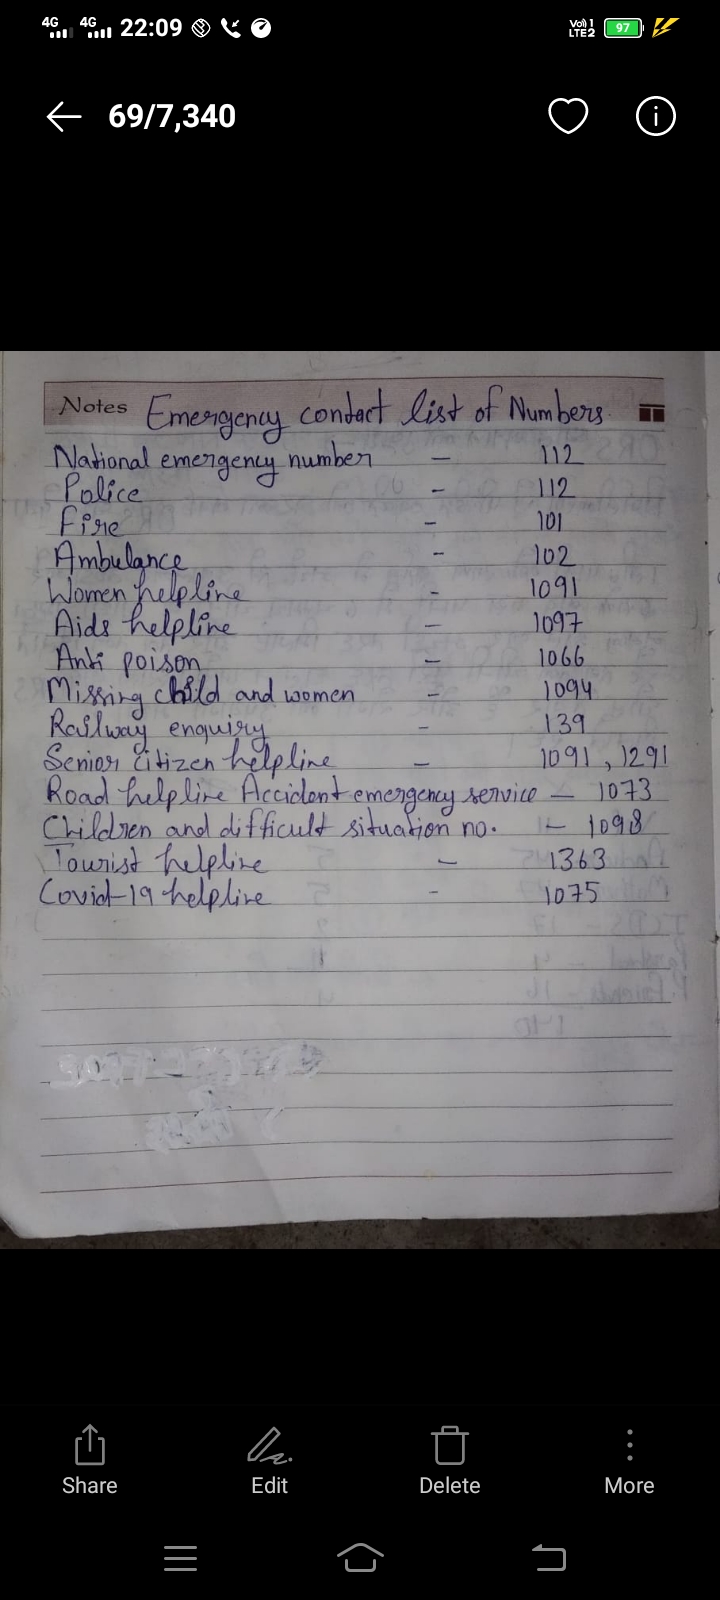 4G 4G 22:09 Vo))1 LTE2 97
69/7,340
Notes Emergency contact list of Numbers
National emergency number - 112
Police - 112
Fire - 101
Ambulance - 102
Women helpline - 1091
Aids helpline - 1097
Anti poison - 1066
Missing child and women - 1094
Railway enquiry - 139
Senior citizen helpline - 1091, 1291
Road helpline Accident emergency service - 1073
Children and difficult situation no. - 1098
Tourist helpline - 1363
Covid-19 helpline - 1075
Share Edit Delete More